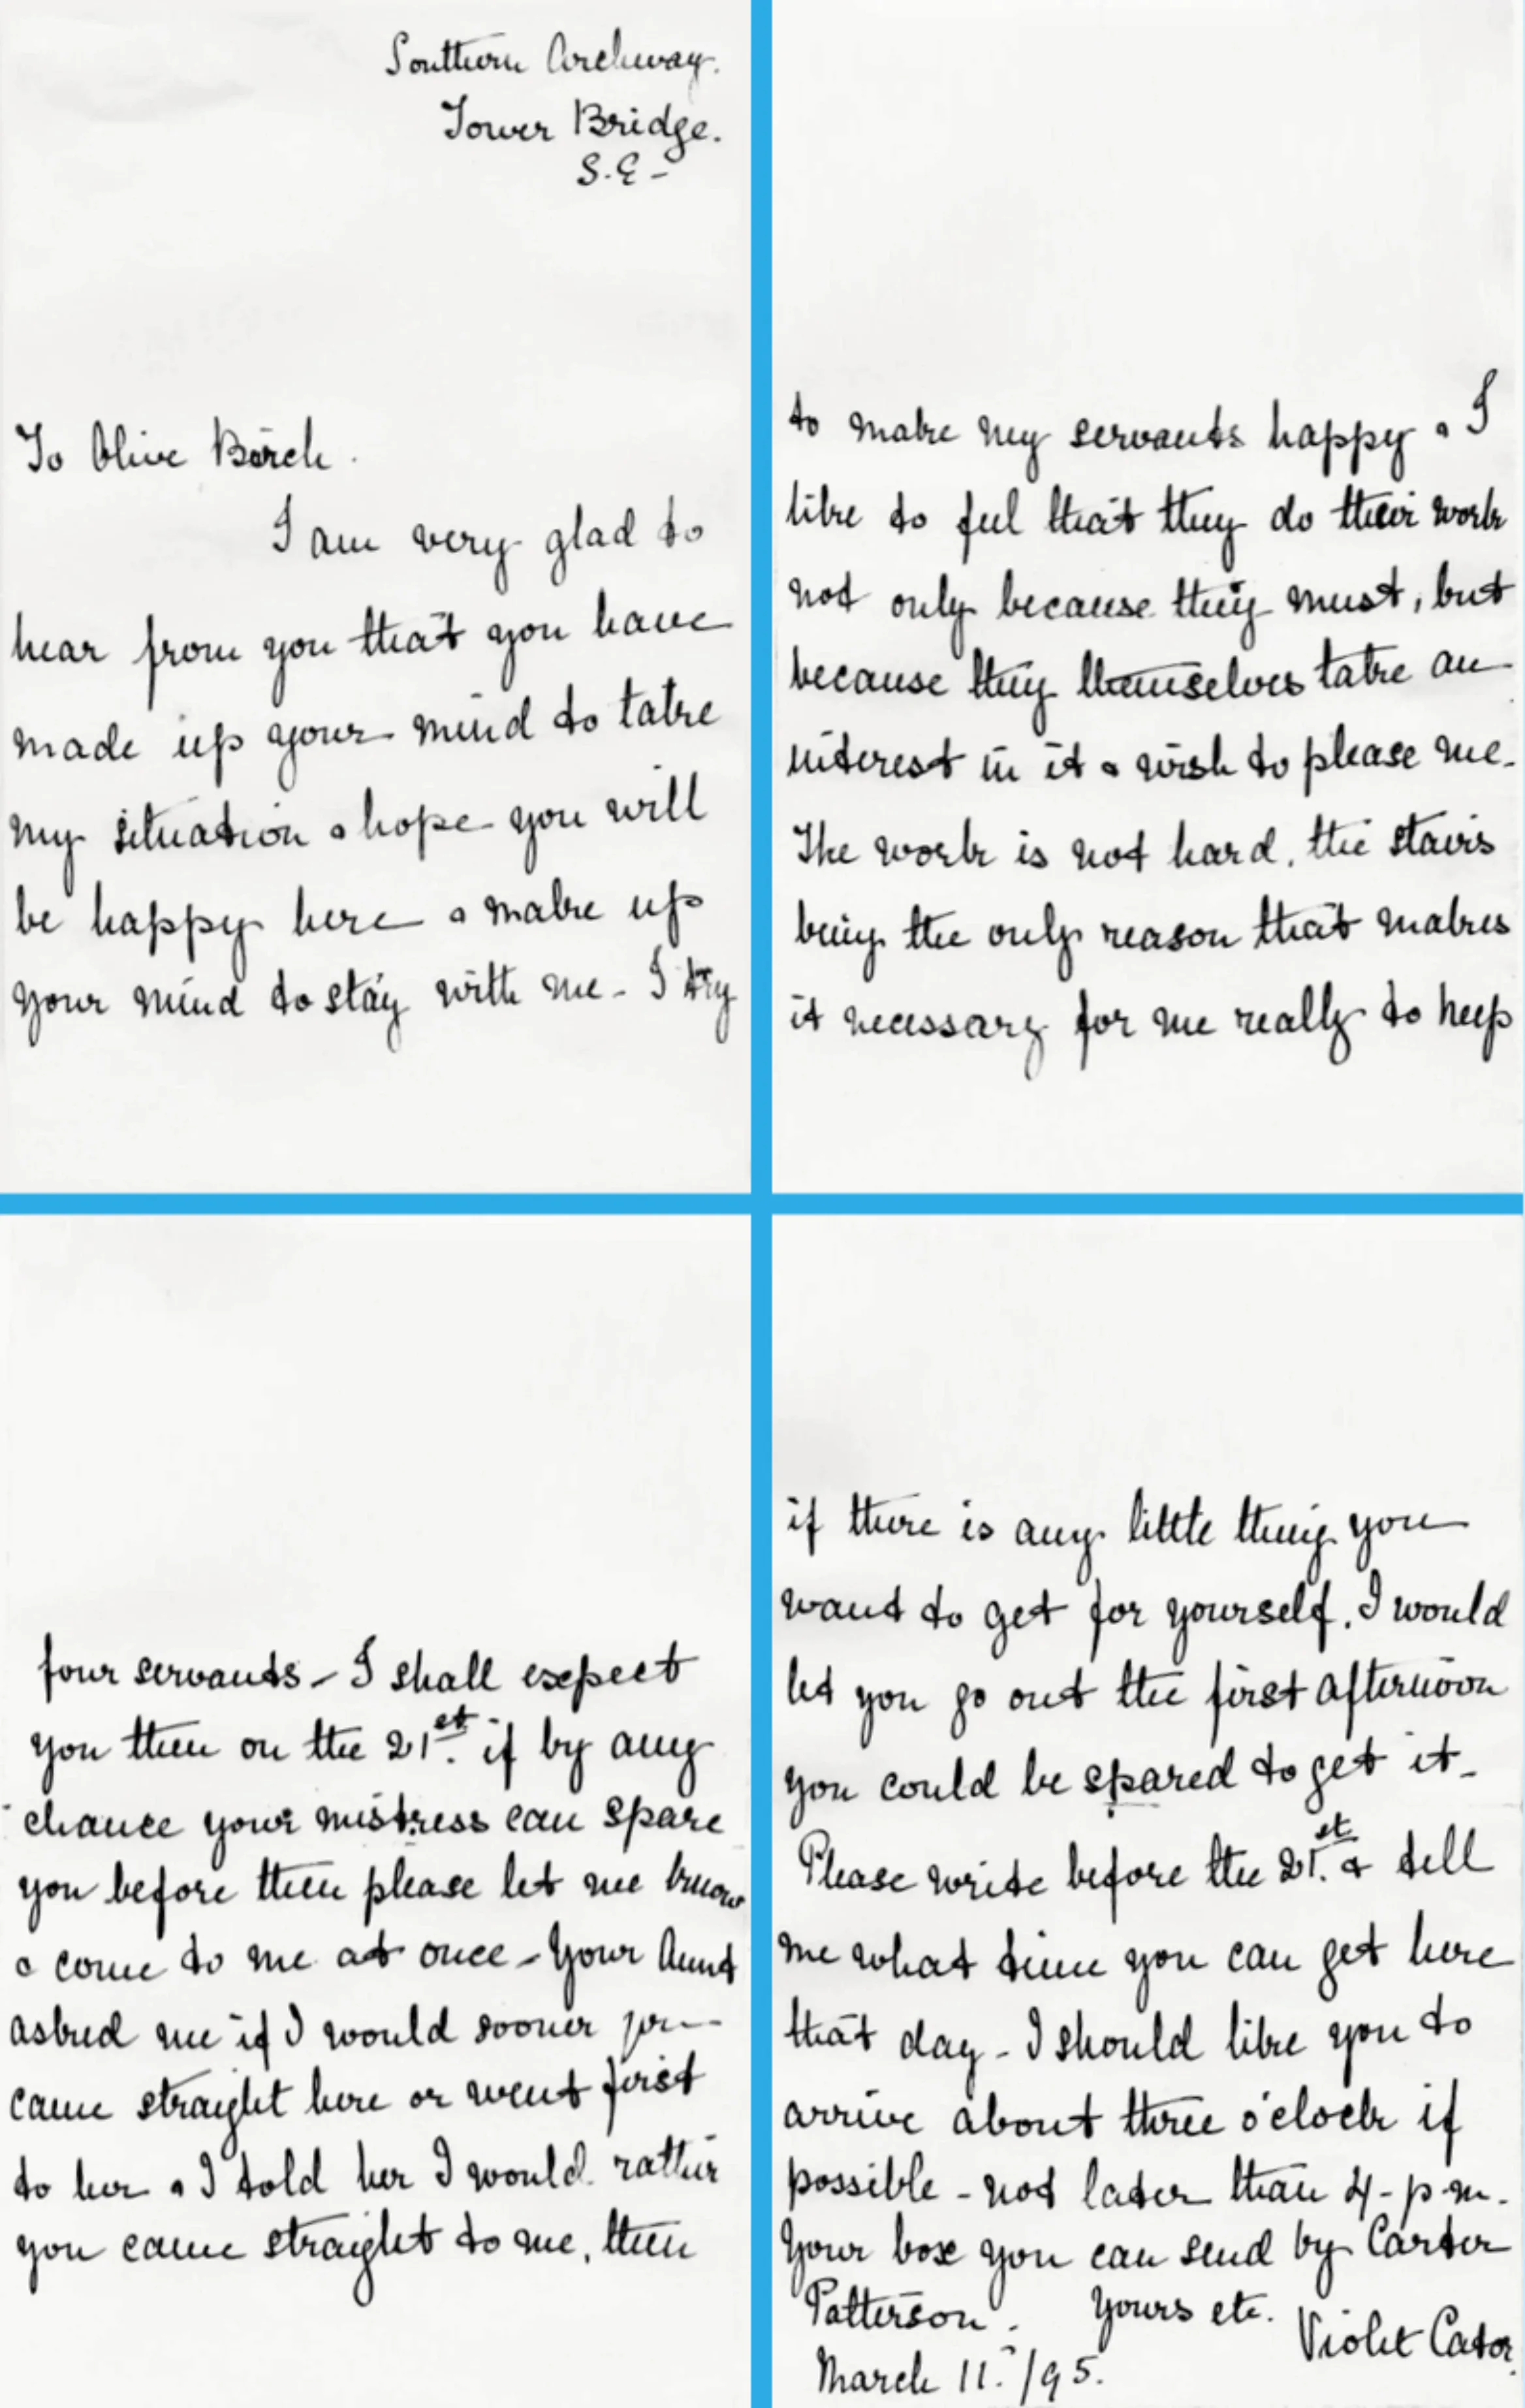 Southern Archway.
Tower Bridge.
S.E-
To Olive Birch.
I am very glad to
hear from you that you have
made up your mind to take
my situation & hope you will
be happy here & make up
your mind to stay with me - I try
to make my servants happy & I
like to feel that they do their work
not only because they must, but
because they themselves take an
interest in it & wish to please me.
The work is not hard, the stairs
being the only reason that makes
it necessary for me really to keep
four servants - I shall expect
you then on the 21st. if by any
chance your mistress can spare
you before then please let me know
& come to me at once - Your Aunt
asked me if I would sooner you
came straight here or went first
to her & I told her I would rather
you came straight to me, then
if there is any little thing you
want to get for yourself, I would
let you go out the first afternoon
you could be spared to get it -
Please write before the 21st. & tell
me what time you can get here
that day - I should like you to
arrive about three o'clock if
possible - not later than 4-p.m.
Your box you can send by Carter
Patterson. Yours etc. Violet Cator.
March 11./95.